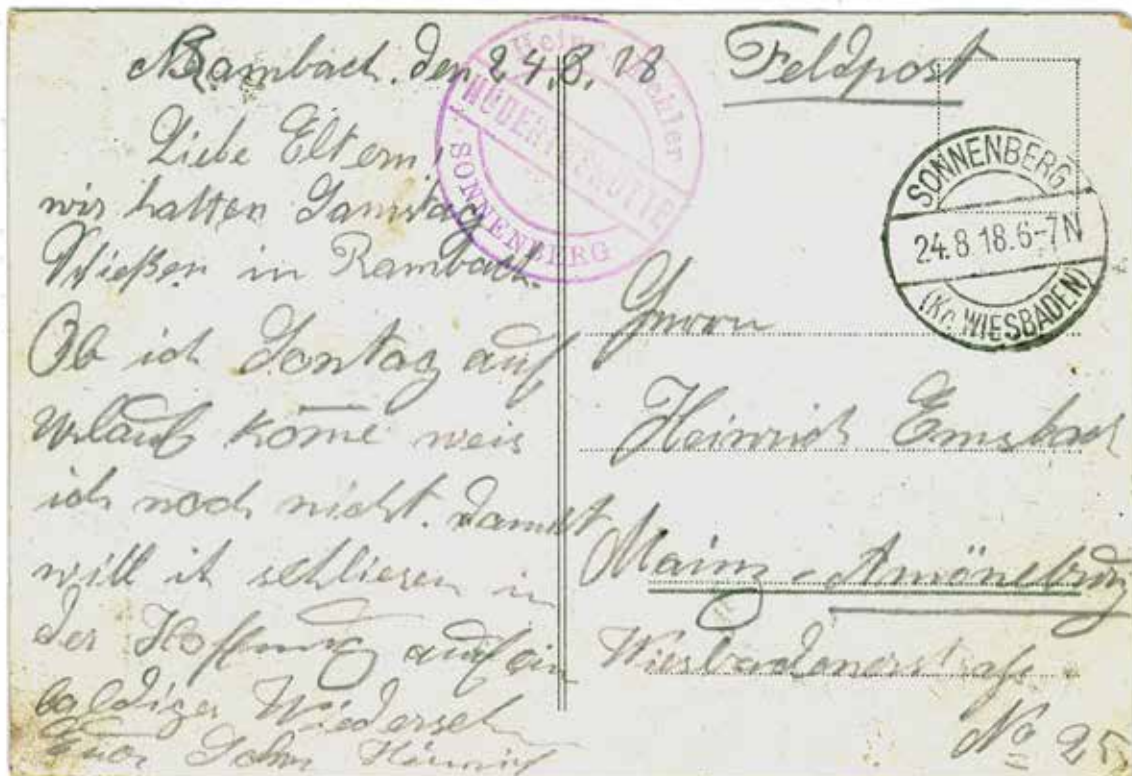 Rambach. den 24.8.18
Liebe Eltern,
wir hatten Samstag
Schießen in Rambach.
Ob ich Sontag auf
Urlaub kome weis
ich noch nicht. Damit
will ich schliesen in
der Hoffnung auf ein
baldiges Wiederseh
Euer Sohn Heinrich
Feldpost
HUBERTUSHÜTTE
SONNENBERG
SONNENBERG
24.8 18.6-7N
(Kr. WIESBADEN)
Herrn
Heinrich Emsbach
Mainz-Amöneburg
Wiesbadenerstraße
No 25